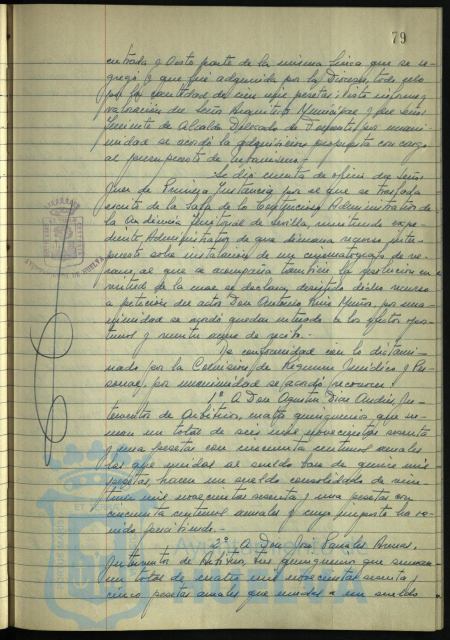 79
entrada y Oeste parte de la misma finca que se se-
gregó y que fué adquirida por la Diocesis, todo ello
por la cantidad de cien mil pesetas; visto informe y
valoración del Señor Arquitecto Municipal y del señor
Teniente de Alcalde Diputado de Deportes por unani-
midad se acordó la adquisición propuesta con cargo
al presupuesto de Urbanismo.-
Se dió cuenta de oficio del Señor
Juez de Primera Instancia por el que se traslada
escrito de la Sala de lo Contencioso Administrativo de
la Audiencia Territorial de Sevilla, remitiendo expe-
diente Administrativo de que dimana recurso inter-
puesto sobre instalación de un cinematógrafo de ve-
rano, al que se acompaña también la resolución en
virtud de la cual se declara desistido dicho recurso
a petición del actor Don Antonio Ruiz Muñoz, por una-
nimidad se acordó quedar enterado a los efectos opor-
tunos y remitir acuse de recibo.-
De conformidad con lo dictami-
nado por la Comisión de Régimen Jurídico y Per-
sonal, por unanimidad se acordó reconocer:
1º. A Don Agustín Diaz, In-
terventor de Arbitrios, cuatro quinquenios, que su-
man un total de seis mil novecientas sesenta
y una pesetas con cincuenta centimos anuales
los que unidos al sueldo base de quince mil
pesetas, hacen un sueldo consolidado de vein-
tiun mil novecientas sesenta y una pesetas con
cincuenta centimos anuales y cuyo importe ha ve-
nido percibiendo.-
2º: A Don José
Interventor de Arbitrios, tres quinquenios que suman
un total de cuatro mil novecientas sesenta y
cinco pesetas anuales que unidos a un sueldo
AYUNTAMIENTO DE HUELVA